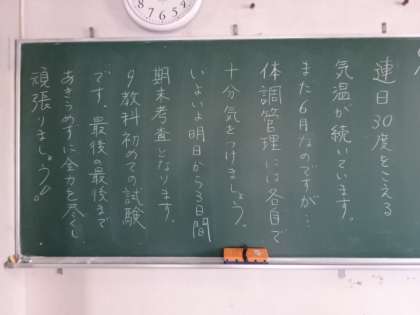 連日30度をこえる
気温が続いています。
まだ6月なのですが…
体調管理には各自で
十分気をつけましょう。
いよいよ明日から3日間
期末考査となります。
9教科初めての試験
です。最後の最後まで
あきらめずに全力を尽くし
頑張りましょう!!